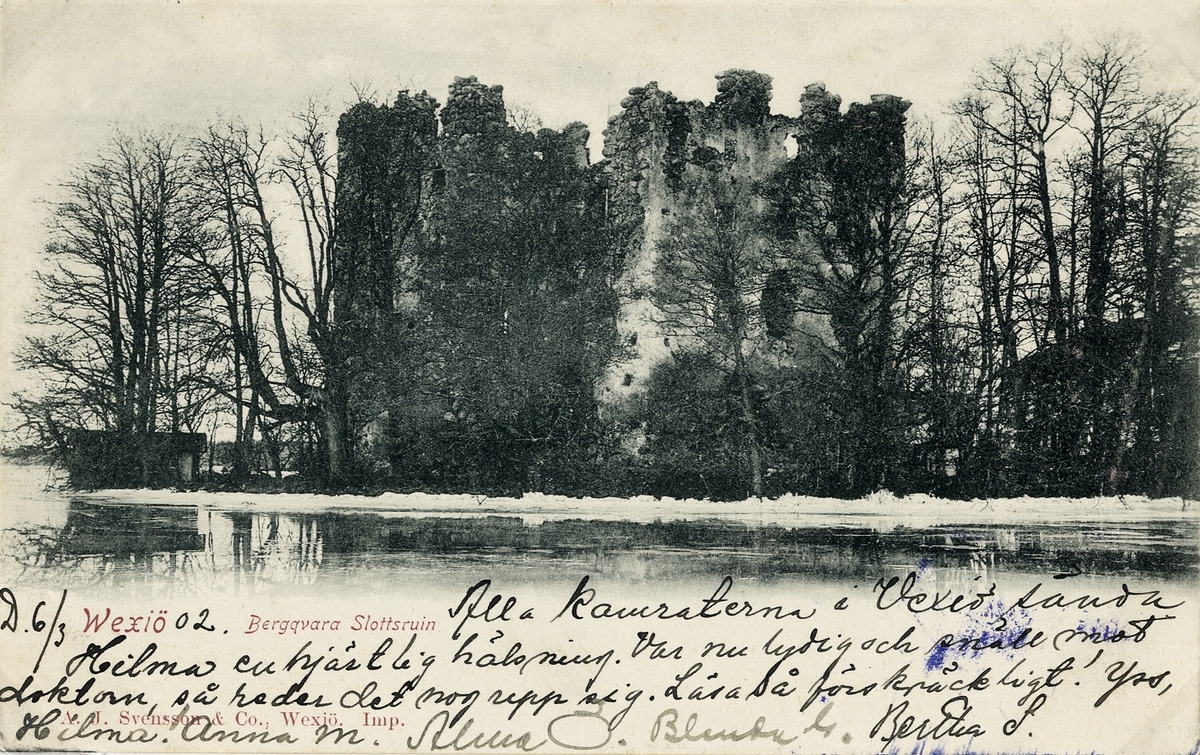 D. 6/3 Wexiö 02. Bergqvara Slottsruin Alla kamraterna i Vexiö sända
Hilma en hjärtlig hälsning. Var nu lydig och snäll mot
doktorn, så reder det nog upp sig. Läsa så förskräckligt! Yrs,
A. J. Svensson & Co., Wexiö. Imp.
Hilma. Anna M. Alma J. Blenda G. Bertha S.